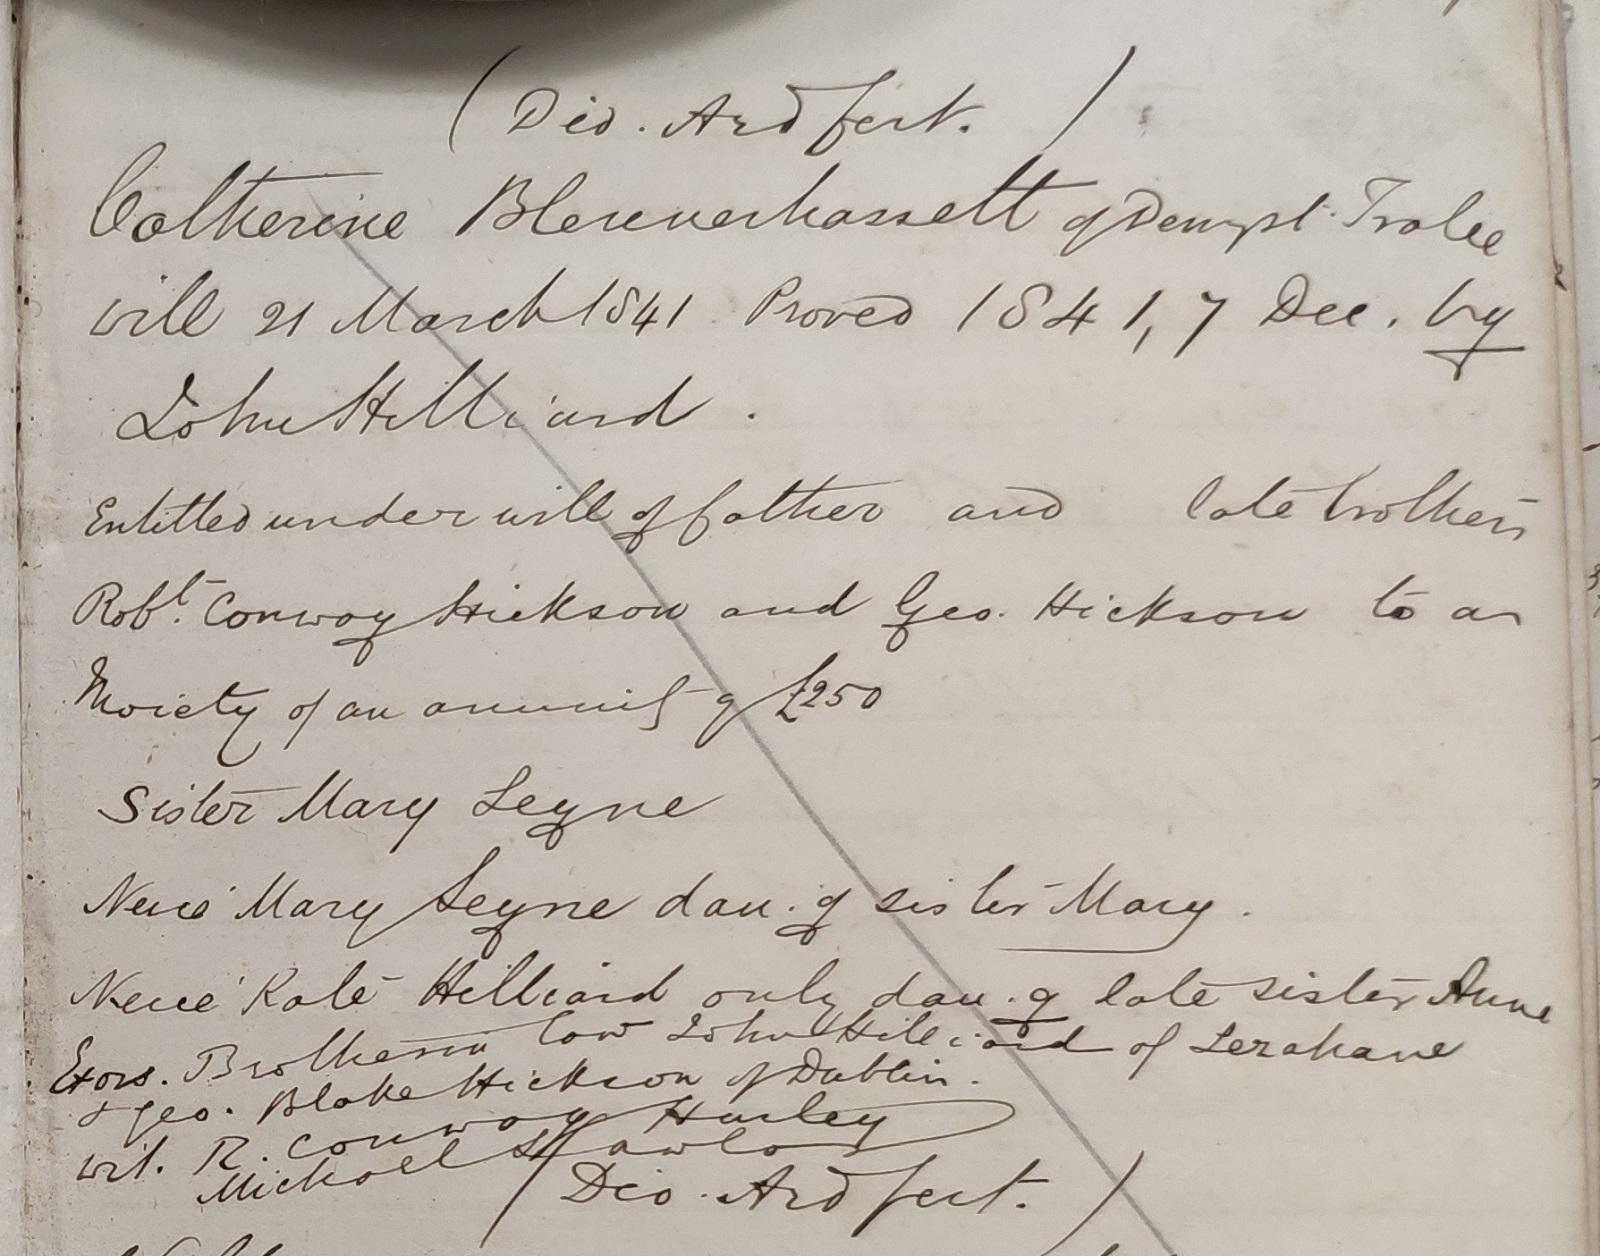 (Dio. Ardfert.)
Catherine Blennerhassett of Denny St. Tralee
will 21 March 1841 Proved 1841, 7 Dec. by
John Hilliard.
Entitled under will of father and late brothers
Robt. Conway Hickson and Geo. Hickson to a
Moiety of an annuity of £250
Sister Mary Leyne
Niece Mary Leyne dau. of sister Mary.
Niece Kate Hilliard only dau. of late sister Anne
Exors. Brother in law John Hilliard of Lerahane
& Geo. Blake Hickson of Dublin.
wit. R. Conway Hurley
Michael Lawlor
(Dio. Ardfert.)